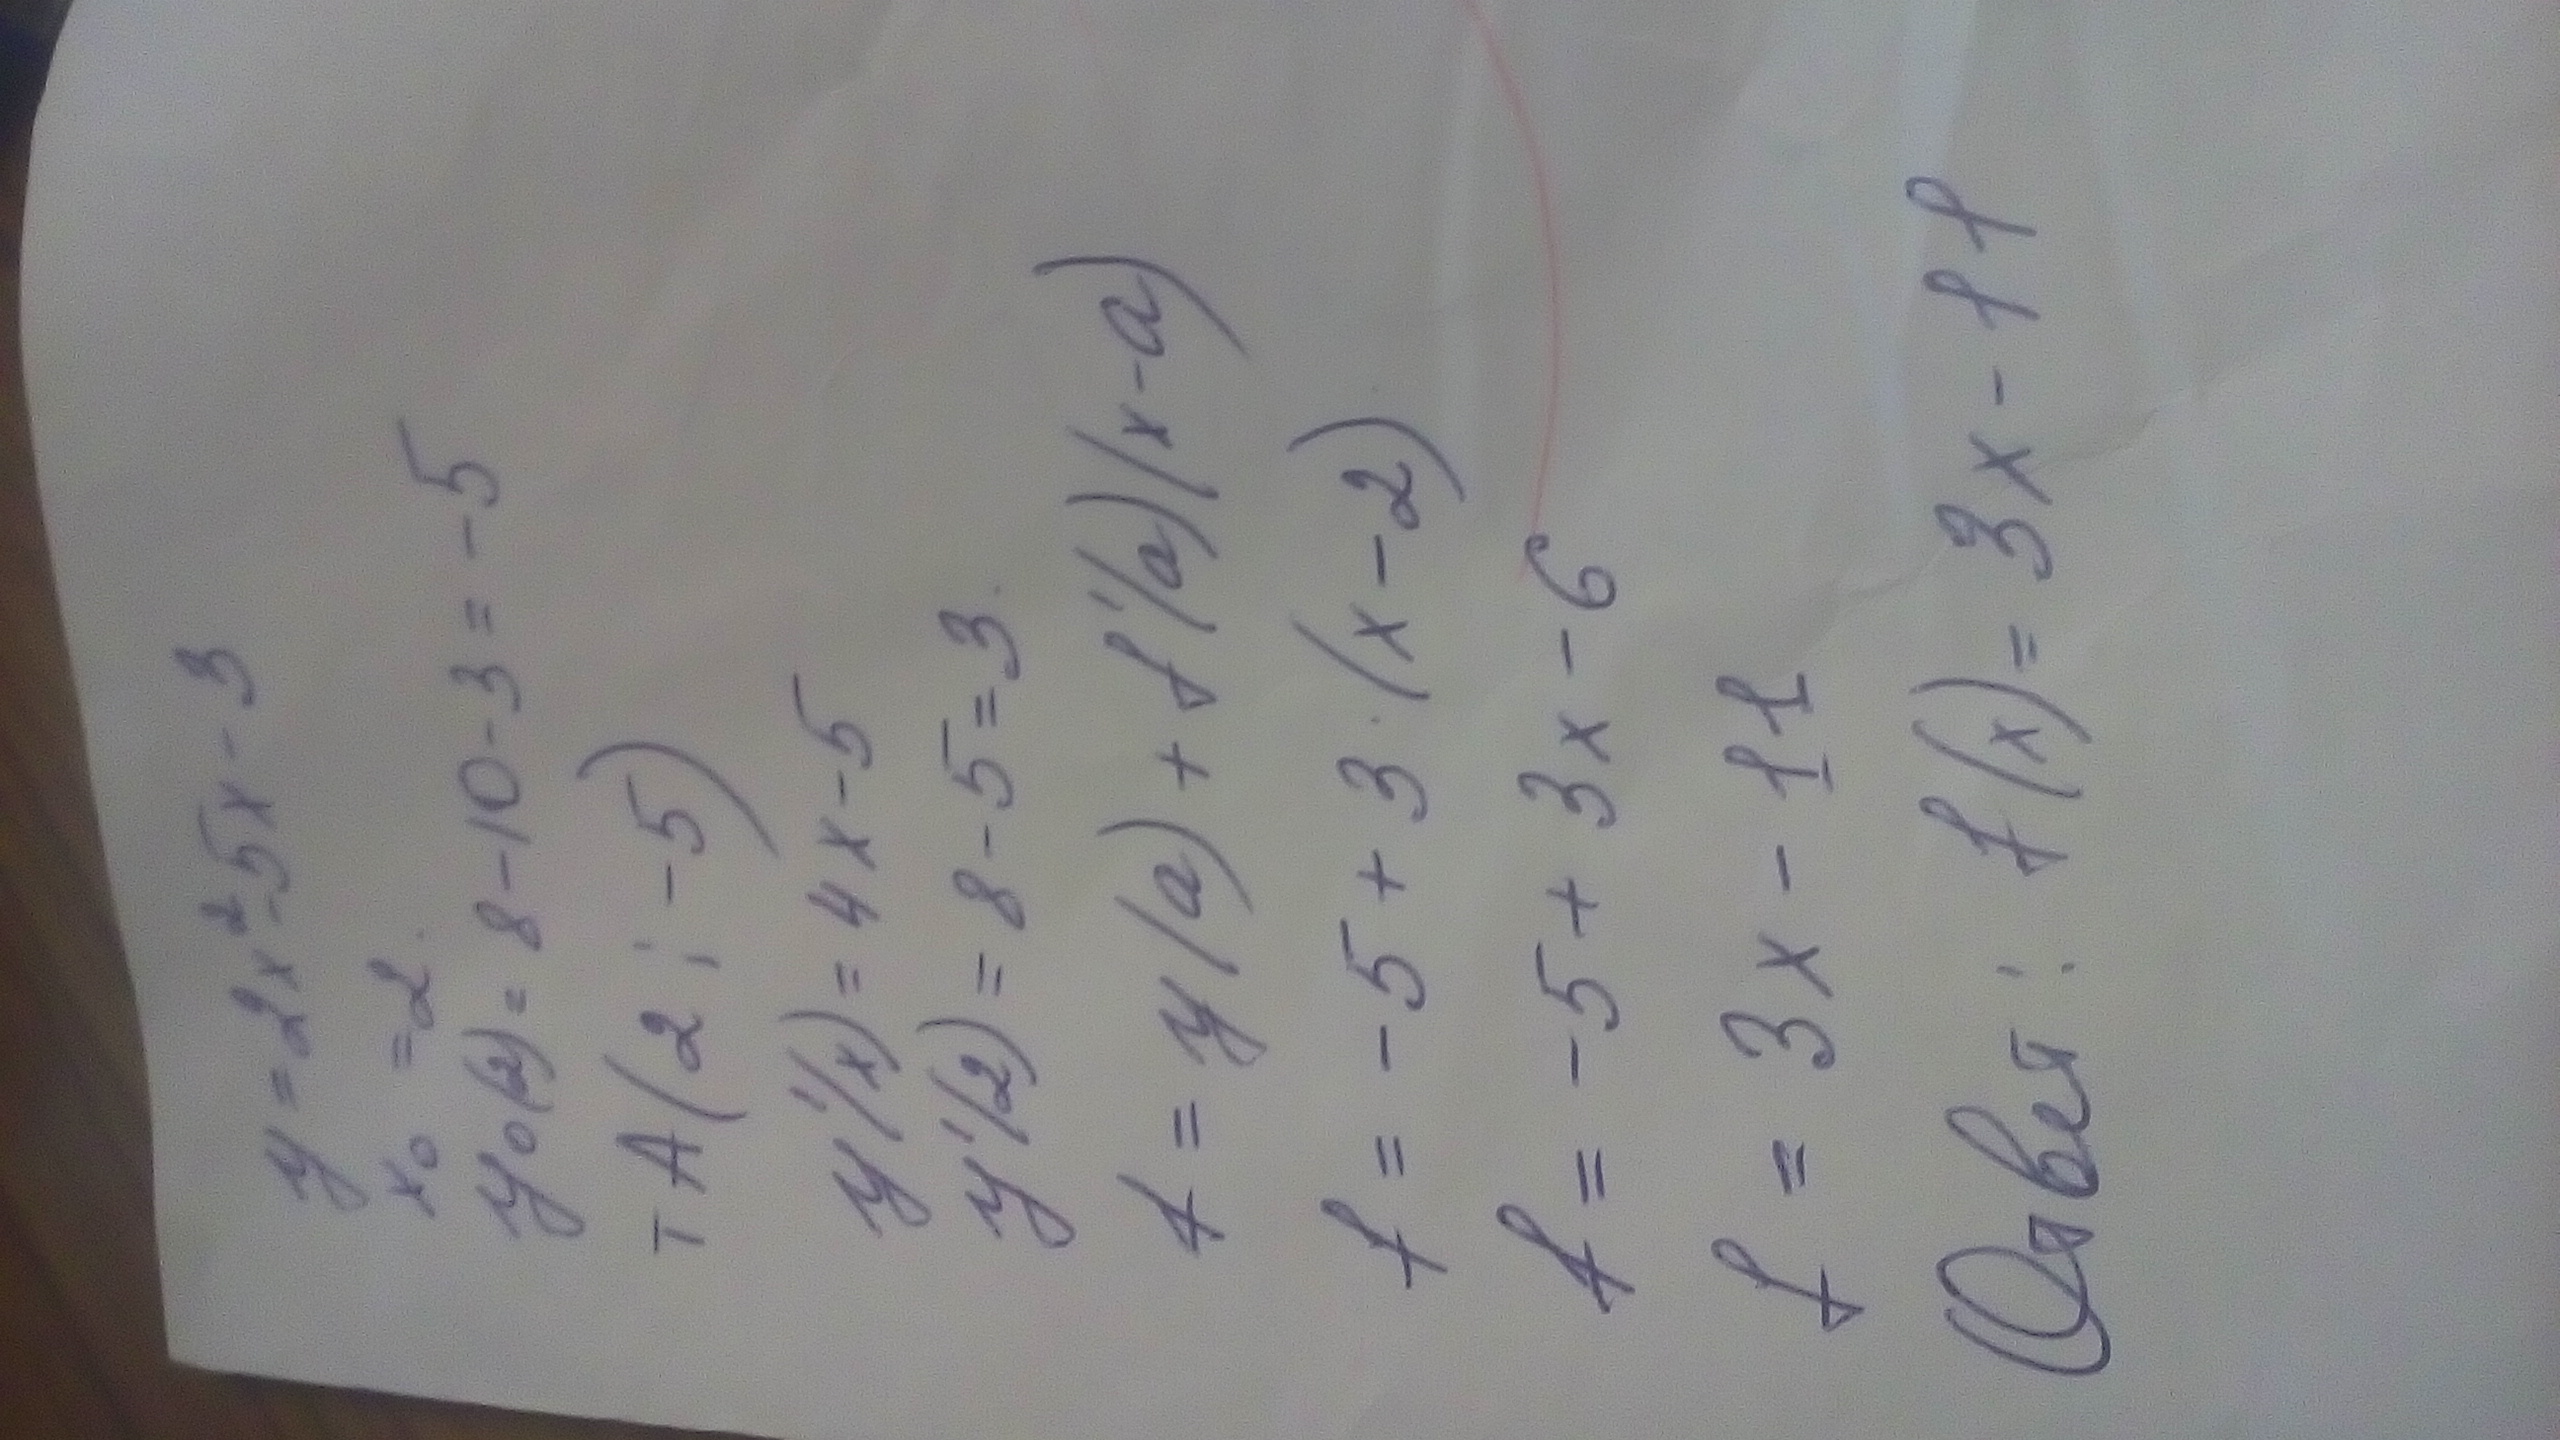 y = 2x² - 5x - 3
x₀ = 2.
y₀(2) = 8 - 10 - 3 = -5
т А(2 ; -5)
y'(x) = 4x - 5
y'(2) = 8 - 5 = 3.
f = y(a) + f'(a)(x - a)
f = -5 + 3·(x - 2)
f = -5 + 3x - 6
f = 3x - 11
Ответ: f(x) = 3x - 11